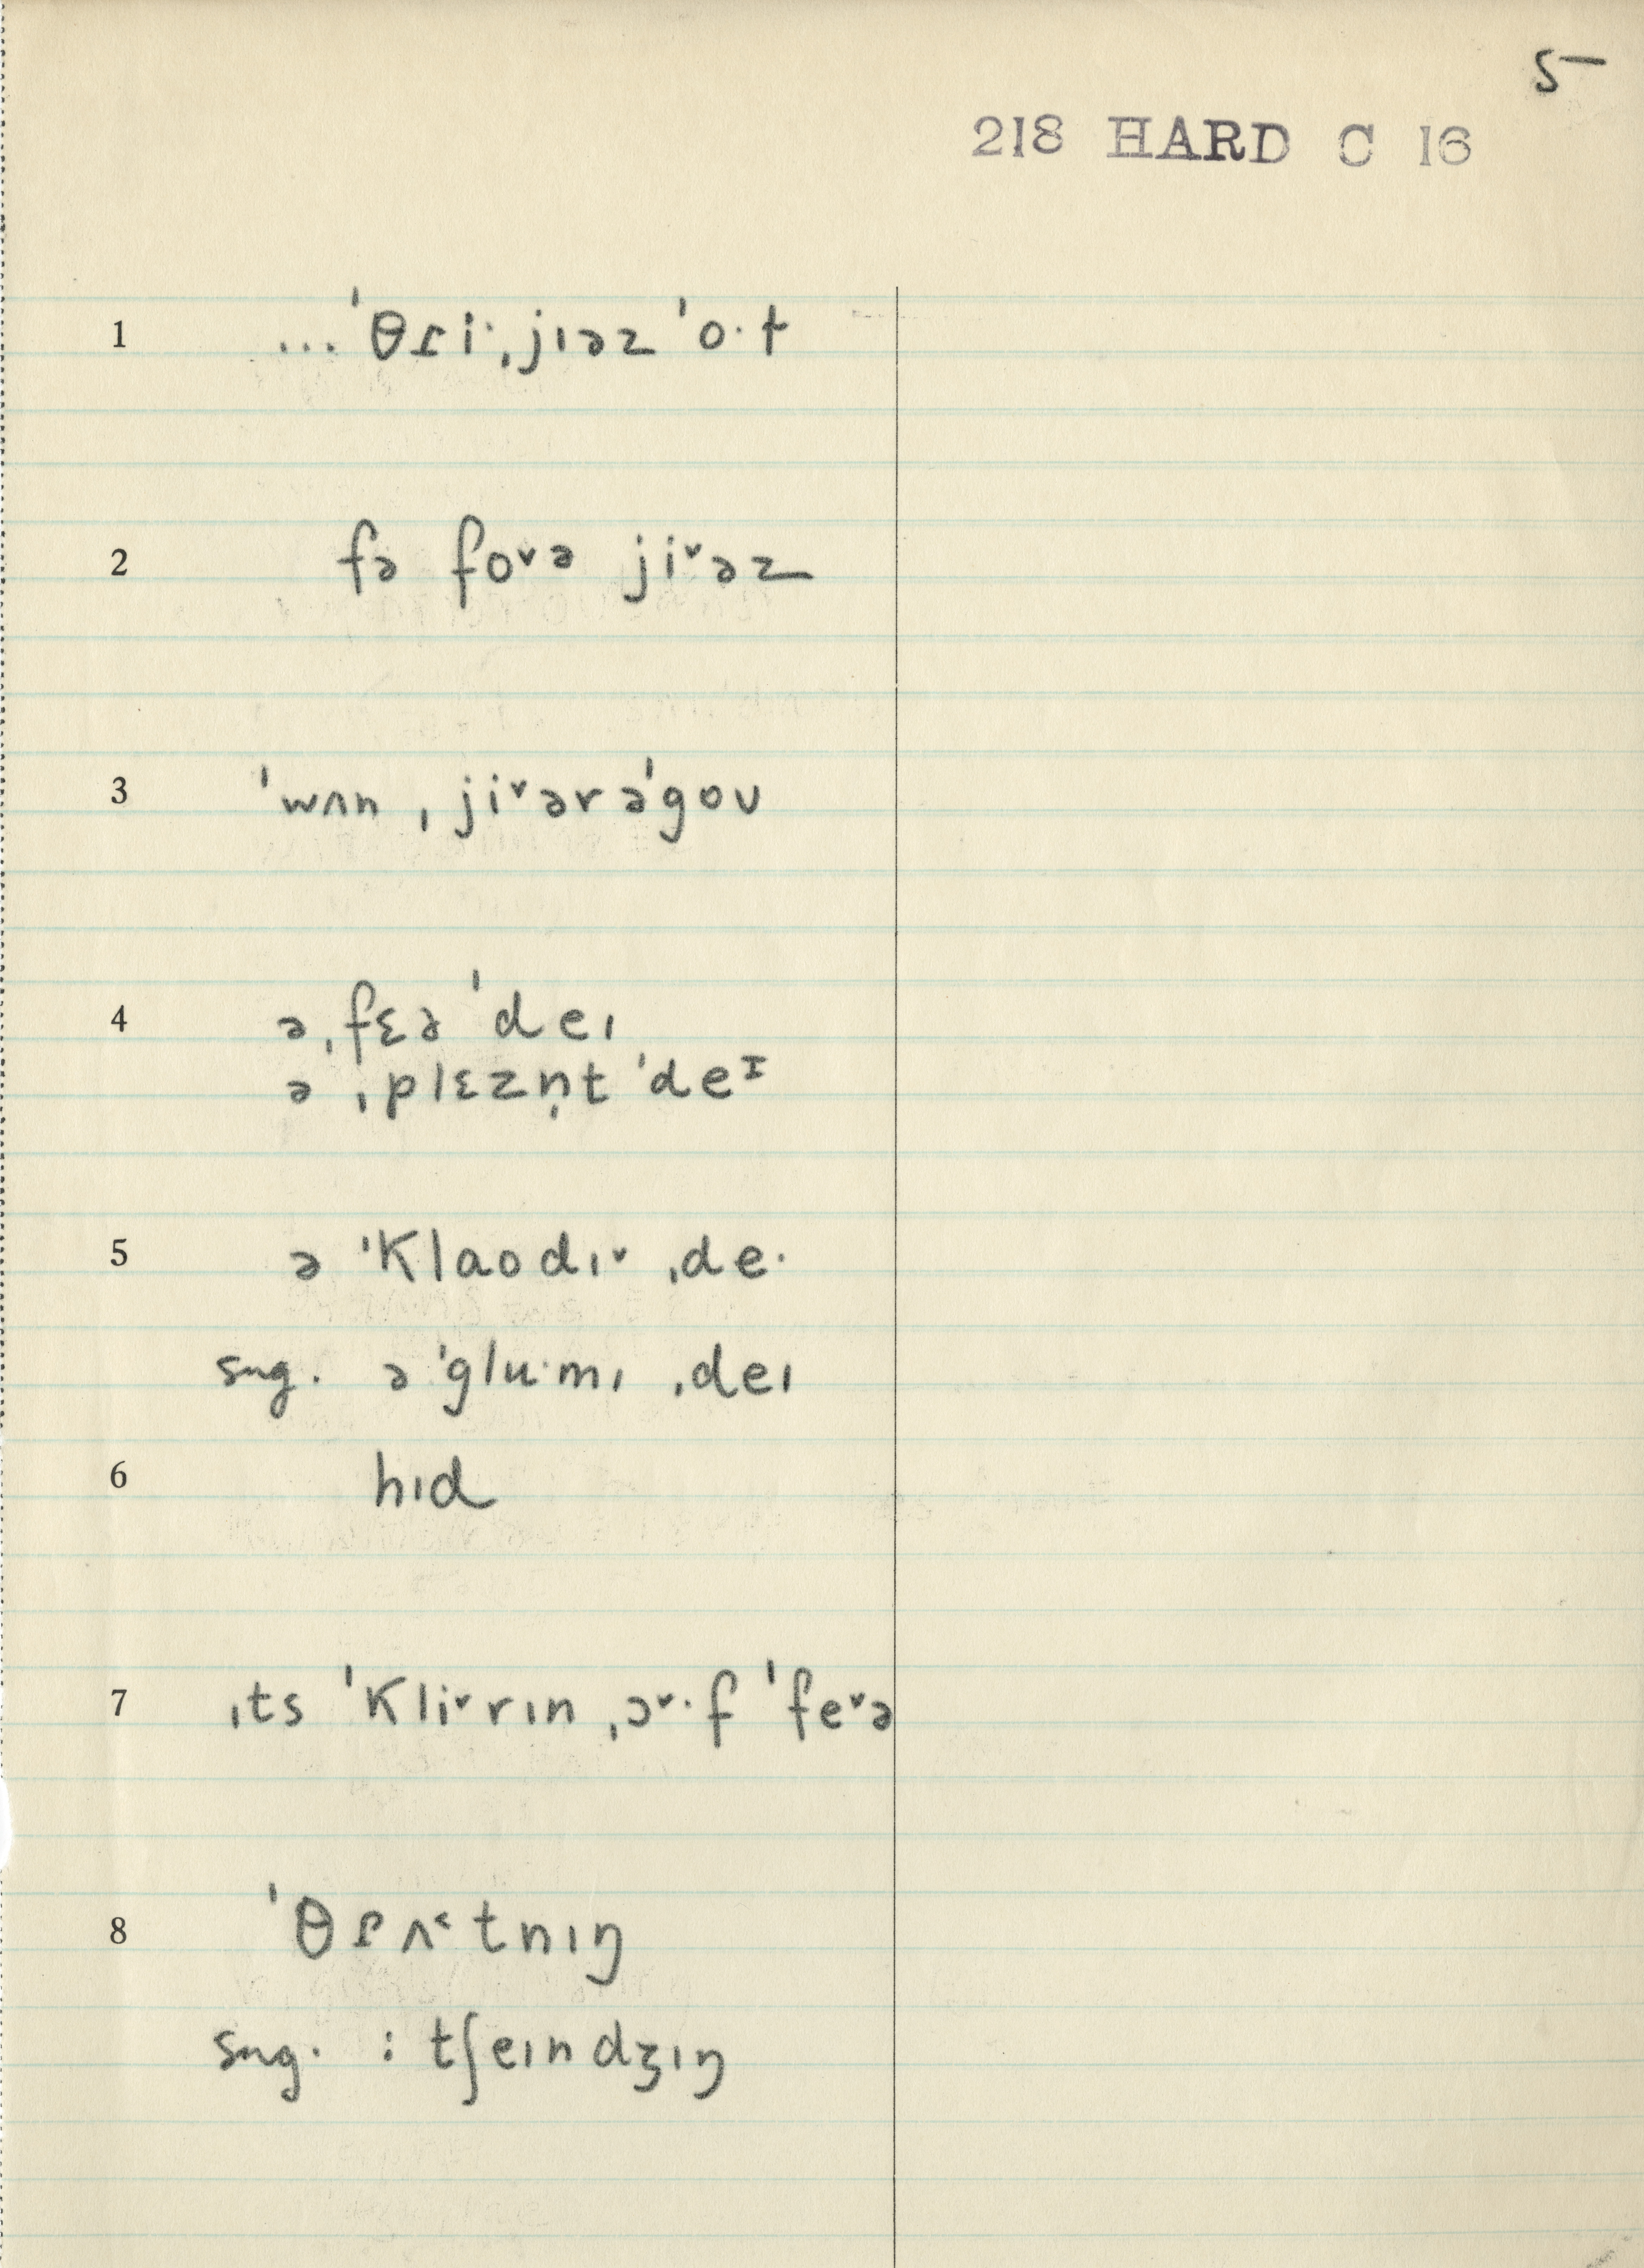 5
218 HARD C 16
1 ...ˈθɾi·ˌjɪəz ˈo·t
2 fə fo˅ə ji˅əz
3 ˈwʌn ˌji˅ərəˈgoʊ
4 əˌfɛə ˈdeɪ
ə ˌplɛzn̩t ˈdeᶦ
5 ə ˈklaodɪ˅ ˌde·
sug. ə ˈglu·mɪ ˌdeɪ
6 hɪd
7 ɪts ˈkli˅rɪn ˌɔ˅·f ˈfe˅ə
8 ˈθɾʌ˂tnɪŋ
sug. : tʃeɪndʒɪŋ